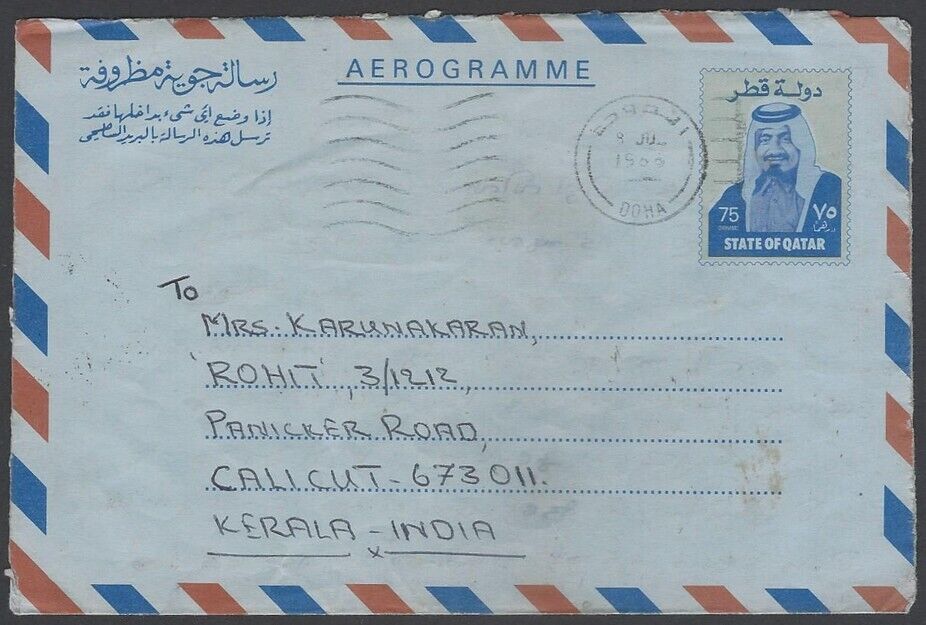 رسالة جوية مظروفة
إذا وضع أي شيء بداخلها فقد
ترسل هذه الرسالة بالبريد السطحي
AEROGRAMME
دولة قطر
75
DIRHAMS
٧٥
درهم
STATE OF QATAR
الدوحة
DOHA
To
MRS. KARUNAKARAN,
'ROHIT', 3/1212,
PANICKER ROAD,
CALICUT - 673 011.
KERALA - INDIA